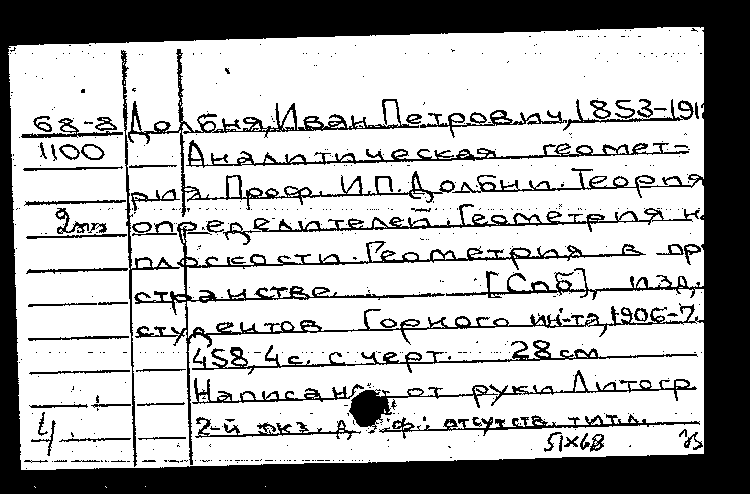 68-8 Долбня, Иван Петрович, 1853-191
1100 Аналитическая геомет=
рия. Проф. И.П. Долбни. Теория
2 определителей. Геометрия н
плоскости. Геометрия в пр
странстве. [Спб], изд.
студентов Горного ин-та, 1906-7.
458, 4 с. с черт. 28 см
Написано от руки Литогр.
4 2-й экз. д ф.: отсутств. тит.л.
51×68